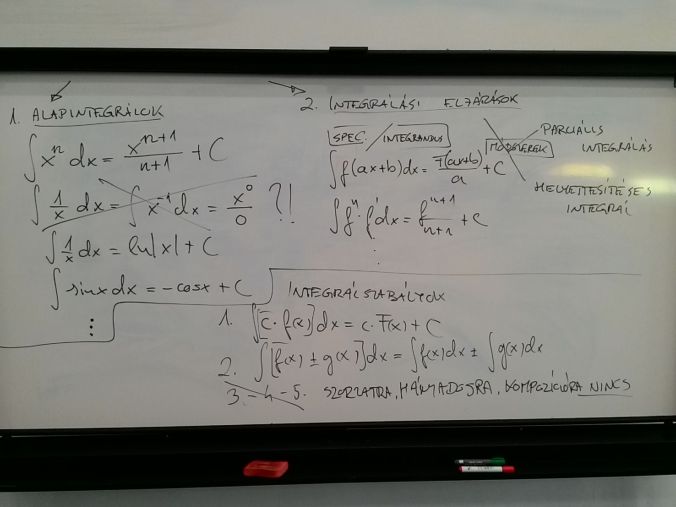 1. ALAPINTEGRÁLOK
∫xⁿ dx = xⁿ⁺¹/n+1 + C
∫1/x dx = ∫x⁻¹ dx = x⁰/0 ?!
∫1/x dx = ln|x| + C
∫sinx dx = -cosx + C
⋮
2. INTEGRÁLÁSI ELJÁRÁSOK
SPEC. INTEGRANDUS
∫f(ax+b)dx = F(ax+b)/a + C
∫fⁿ·f'dx = fⁿ⁺¹/n+1 + C
⋮
MÓDSZEREK
PARCIÁLIS
INTEGRÁLÁS
HELYETTESÍTÉSES
INTEGRÁL
INTEGRÁLSZABÁLYOK
1. ∫[c·f(x)]dx = c·F(x) + C
2. ∫[f(x) ± g(x)]dx = ∫f(x)dx ± ∫g(x)dx
3. - 4 - 5. SZORZATRA, HÁNYADOSRA, KOMPOZÍCIÓRA NINCS